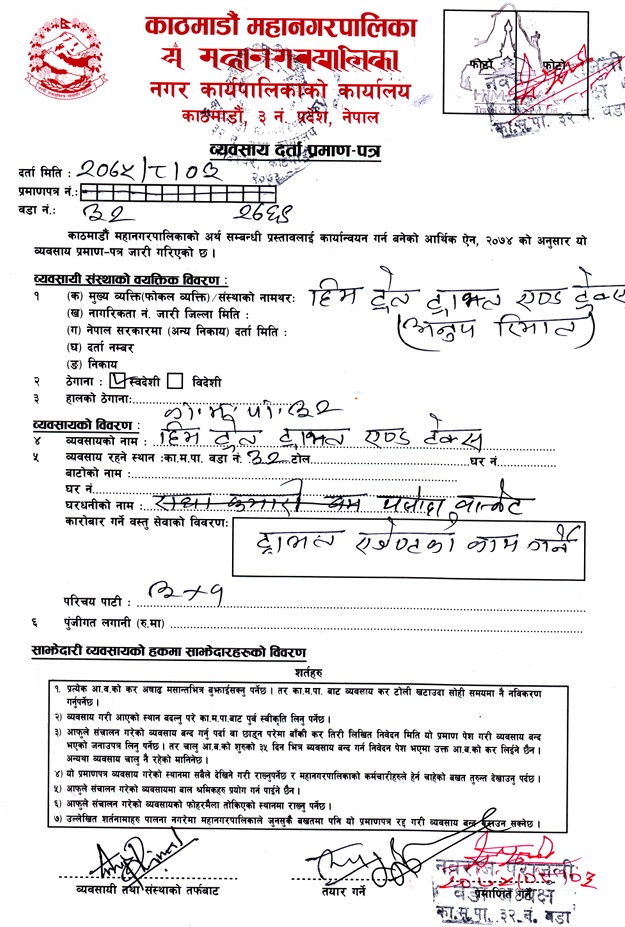 काठमाडौं महानगरपालिका
नगर कार्यपालिकाको कार्यालय
काठमाडौं, ३ नं. प्रदेश, नेपाल
फोटो फोटो
का.म.पा. ३२ नं. वडा
व्यवसाय दर्ता प्रमाण-पत्र
दर्ता मिति : २०७५/८/०३
प्रमाणपत्र नं.:
वडा नं.: ३२
काठमाडौं महानगरपालिकाको अर्थ सम्बन्धी प्रस्तावलाई कार्यान्वयन गर्न बनेको आर्थिक ऐन, २०७४ को अनुसार यो
व्यवसाय प्रमाण-पत्र जारी गरिएको छ ।
व्यवसायी संस्थाको वयक्तिक विवरण :
१ (क) मुख्य व्यक्ति(फोकल व्यक्ति)/संस्थाको नामथर: हिम ट्रेल ट्राभल एण्ड
(ख) नागरिकता नं. जारी जिल्ला मिति :
(ग) नेपाल सरकारमा (अन्य निकाय) दर्ता मिति :
(घ) दर्ता नम्बर
(ङ) निकाय
२ ठेगाना : स्वदेशी विदेशी
३ हालको ठेगाना: का.म.पा.३२
व्यवसायको विवरण :
४ व्यवसायको नाम : हिम ट्रेल ट्राभल एण्ड
५ व्यवसाय रहने स्थान :का.म.पा. वडा नं. ३२ टोल घर नं.
बाटोको नाम :
घर नं.
घरधनीको नाम:
कारोबार गर्ने वस्तु सेवाको विवरण: ट्राभल एजेण्टको काम गर्ने
परिचय पाटी :
६ पुंजीगत लगानी (रु.मा)
साझेदारी व्यवसायको हकमा साझेदारहरुको विवरण
शर्तहरु
१. प्रत्येक आ.ब.को कर अषाढ मसान्तभित्र बुझाईसक्नु पर्नेछ । तर का.म.पा. बाट व्यवसाय कर टोली खटाउदा सोही समयमा नै नविकरण
गर्नुपर्नेछ ।
२) व्यवसाय गरी आएको स्थान बदल्नु परे का.म.पा.बाट पुर्व स्वीकृति लिनु पर्नेछ ।
३) आफुले संचालन गरेको व्यवसाय बन्द गर्नु पर्दा वा छाड्न परेमा बाँकी कर तिरी लिखित निवेदन मिति यो प्रमाण पेश गरी व्यवसाय बन्द
भएको जनाउपत्र लिनु पर्नेछ । तर चालु आ.ब.को शुरुको ३५ दिन भित्र व्यवसाय बन्द गर्न निवेदन पेश भएमा उक्त आ.ब.को कर लिईने छैन ।
अन्यथा व्यवसाय चालु नै रहेको मानिनेछ ।
४) यो प्रमाणपत्र व्यवसाय गरेको स्थानमा सबैले देखिने गरी राख्नुपर्नेछ र महानगरपालिकाको कर्मचारीहरुले हेर्न चाहेको बखत तुरुन्त देखाउनु पर्दछ ।
५) आफुले संचालन गरेको व्यवसायमा बाल श्रमिकहरु प्रयोग गर्न पाईने छैन ।
६) आफुले संचालन गरेको व्यवसायको फोहरमैला तोकिएको स्थानमा राख्नु पर्नेछ ।
७) उल्लेखित शर्तनामाहरु पालना नगरेमा महानगरपालिकाले जुनसुकै बखतमा पनि यो प्रमाणपत्र रद्द गरी व्यवसाय बन्द गराउन सक्नेछ ।
व्यवसायी तथा संस्थाको तर्फबाट तयार गर्ने प्रमाणित गर्ने
वडा अध्यक्ष
का.म.पा. ३२ नं. वडा